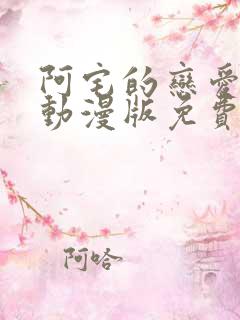 阿宅的戀愛
動漫版免費
阿哈